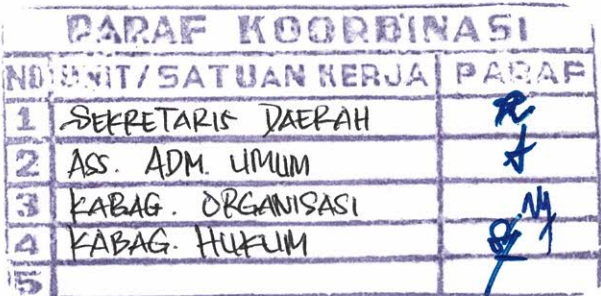 PARAF KOORDINASI
NO UNIT/SATUAN KERJA PARAF
1 SEKRETARIS DAERAH
2 ASS. ADM. UMUM
3 KABAG. ORGANISASI
4 KABAG. HUKUM
5